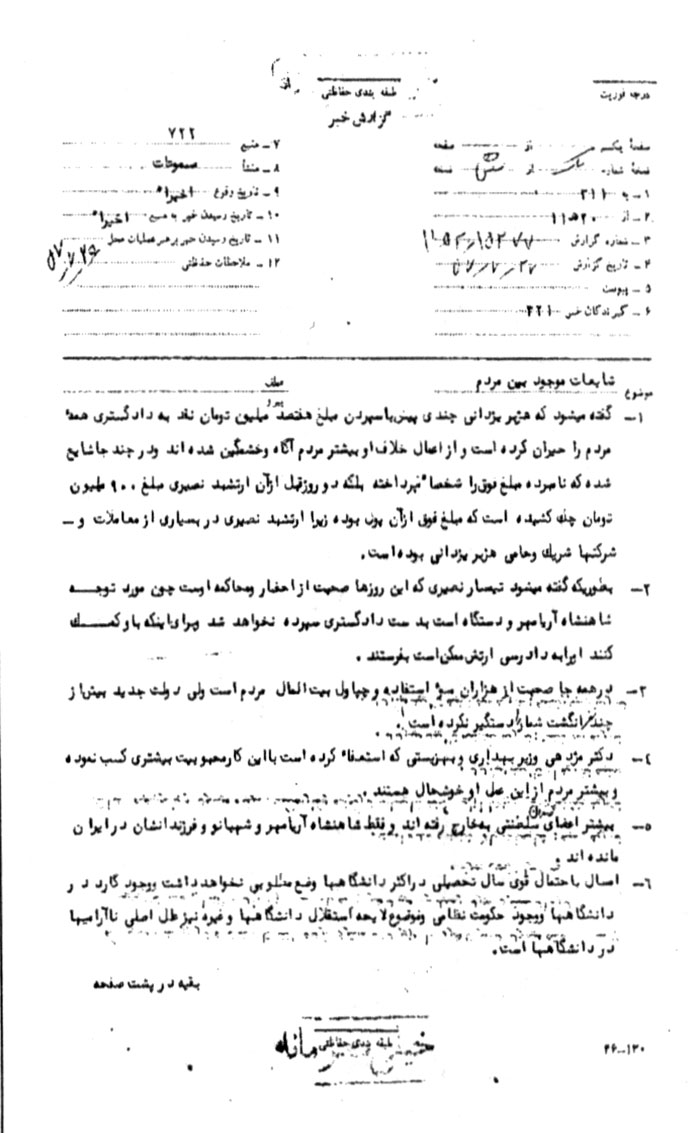 درجه فوریت
طبقه بندی حفاظتی
گزارش خبر
صفحهٔ یکم از صفحه
نسخهٔ شماره یک از شش نسخه
۱ـ به ۳۱۱
۲ـ از ۲۰هـ۱۱
۳ـ شماره گزارش
۴ـ تاریخ گزارش
۵ـ پیوست
۶ـ گیرندگان خبر ۳۲۱
۷ـ منبع ۷۲۲
۸ـ منشأ مسموعات
۹ـ تاریخ وقوع اخیراً
۱۰ـ تاریخ رسیدن خبر به منبع اخیراً
۱۱ـ تاریخ رسیدن خبر برهبر عملیات محل
۱۲ـ ملاحظات حفاظتی
موضوع شایعات موجود بین مردم عطف
پیرو
۱ـ گفته میشود که هژبر یزدانی چندی پیش با سپردن مبلغ هفتصد میلیون تومان نقد به دادگستری همهٔ
مردم را حیران کرده است و از اعمال خلاف او بیشتر مردم آگاه وخشمگین شده اند ودر چند جا شایع
شده که نامبرده مبلغ فوق را شخصاً نپرداخته بلکه دو روز قبل از آن ارتشبد نصیری مبلغ ۹۰۰ ملیون
تومان چک کشیده است که مبلغ فوق از آن پول بوده زیرا ارتشبد نصیری در بسیاری از معاملات و ـ
شرکتها شریک وحامی هژبر یزدانی بوده است.
۲ـ بطوریکه گفته میشود تیمسار نصیری که این روزها صحبت از احضار ومحاکمه اوست چون مورد توجه
شاهنشاه آریامهر و دستگاه است بدست دادگستری سپرده نخواهد شد وبرای اینکه باو کمک
کنند اورا به دادرسی ارتش ممکن است بفرستند.
۳ـ در همه جا صحبت از هزاران سوء استفاده و چپاول بیت المال مردم است ولی دولت جدید بیش از
چند نفر انگشت شمار را دستگیر نکرده است.
۴ـ دکتر مژدهی وزیر بهداری و بهزیستی که استعفاء کرده است با این کار محبوبیت بیشتری کسب نموده
و بیشتر مردم از این عمل او خوشحال هستند.
۵ـ بیشتر اعضای خاندان سلطنتی به خارج رفته اند و فقط شاهنشاه آریامهر و شهبانو و فرزندانشان در ایران
مانده اند و
۶ـ امسال با احتمال قوی سال تحصیلی در اکثر دانشگاهها وضع مطلوبی نخواهد داشت ووجود گارد در
دانشگاهها ووجود حکومت نظامی وموضوع لایحه استقلال دانشگاهها و غیره نیز علل اصلی ناآرامیها
در دانشگاهها است.
بقیه در پشت صفحه
طبقه بندی حفاظتی
خیلی محرمانه
۲۶ـ۱۳۰